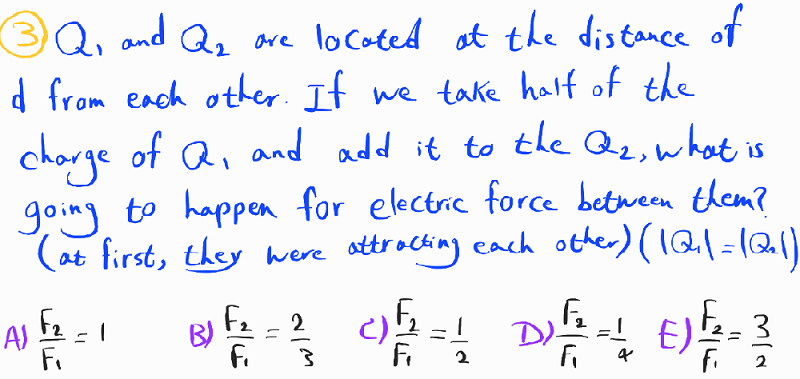 3 Q₁ and Q₂ are located at the distance of
d from each other. If we take half of the
charge of Q₁ and add it to the Q₂, what is
going to happen for electric force between them?
(at first, they were attracting each other) (|Q₁|=|Q₂|)
A) F₂/F₁ = 1 B) F₂/F₁ = 2/3 C) F₂/F₁ = 1/2 D) F₂/F₁ = 1/4 E) F₂/F₁ = 3/2